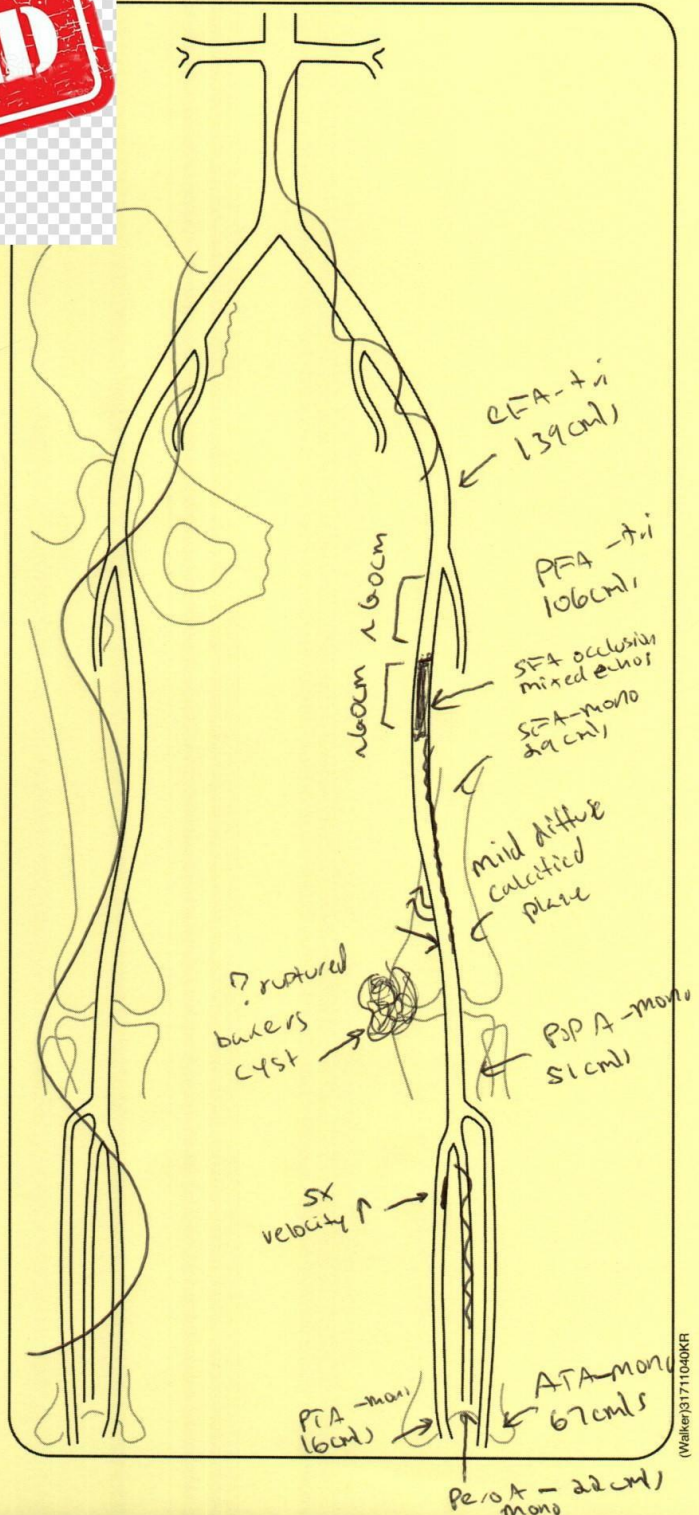 D
CFA-tri
139cm/s
PFA-tri
106cm/s
~60cm
SFA occlusion
mixed echos
~60cm
SFA-mono
29cm/s
mild diffuse
calcified
? ruptured
bakers
cyst
POP A-mono
51cm/s
5x
velocity ↑
PTA-mono
16cm/s
ATA-mono
67cm/s
PeroA - 22cm/s
mono
(Walker)31711040KR